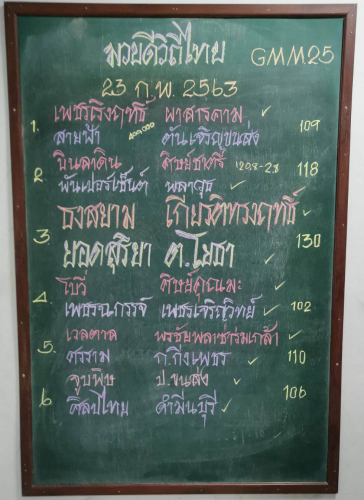 มวยดีวิถีไทย GMM.25
23 ก.พ. 2563
1. เพชรเริงฤทธิ์ ผาสารคาม 109
สายฟ้า 400,000 ตันเจริญขนส่ง
2. บินลาดิน ศิษย์ชาตรี 120.8-2.8 118
พันเปอร์เซ็นต์ พลาวุธ
3. ธงสยาม เกียรติทรงฤทธิ์ 130
ยอดสุริยา ต.โยธา
4. โบวี่ ศิษย์คุณมะ 102
เพชรนครรจ์ เพชรเจริญวิทย์
5. เวลดาล พรชัยพลาซ่าร่มเกล้า 110
ศรราม ก.กิ่งเพชร
6. จูบพิษ ป.ขนส่ง 106
ศิลป์ไทย คำมีนบุรี